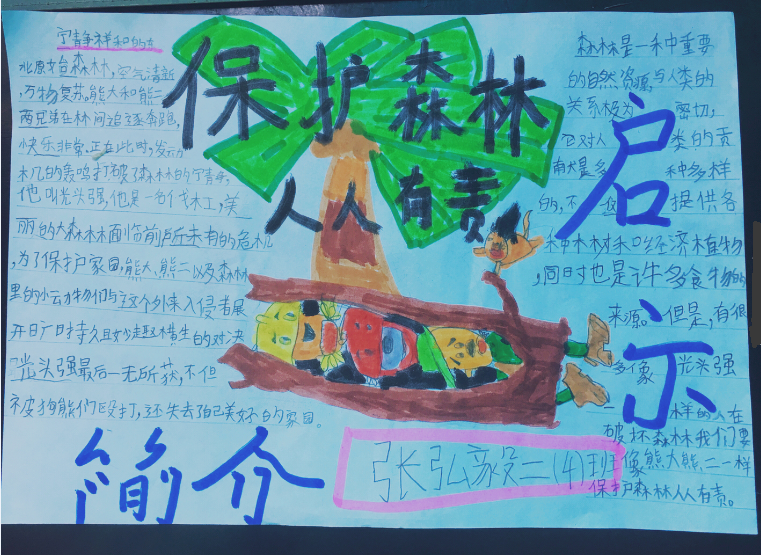 保护森林
人人有责
宁静祥和的东
北原始森林,空气清新
,万物复苏。熊大和熊二
两兄弟在林间追逐奔跑,
快乐非常。正在此时,发动
木几的轰鸣打破了森林的宁静,
他叫光头强,他是一名伐木工,美
丽的大森林面临前所未有的危机
,为了保护家园,熊大、熊二以及森林
里的小动物们与这个外来入侵者展
开旷日持久且妙趣横生的对决
光头强最后一无所获,不但
被狗熊们殴打,还失去自己美好的家园。
简介
森林是一种重要
的自然资源与人类的
关系极为密切,
它对人类的贡
献是多种多样
的,不仅提供各
种木材和经济植物
,同时也是许多食物的
来源。但是,有很
多像光头强
一样的人在
破坏森林我们要
像熊大熊二一样
保护森林人人有责。
启示
张弘毅二(4)班